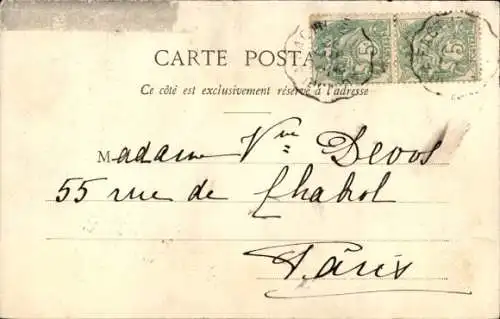 CARTE POSTA
Ce côté est exclusivement réservé à l'adresse
Madame Vve Devos
55 rue de Chabrol
Paris
5 5